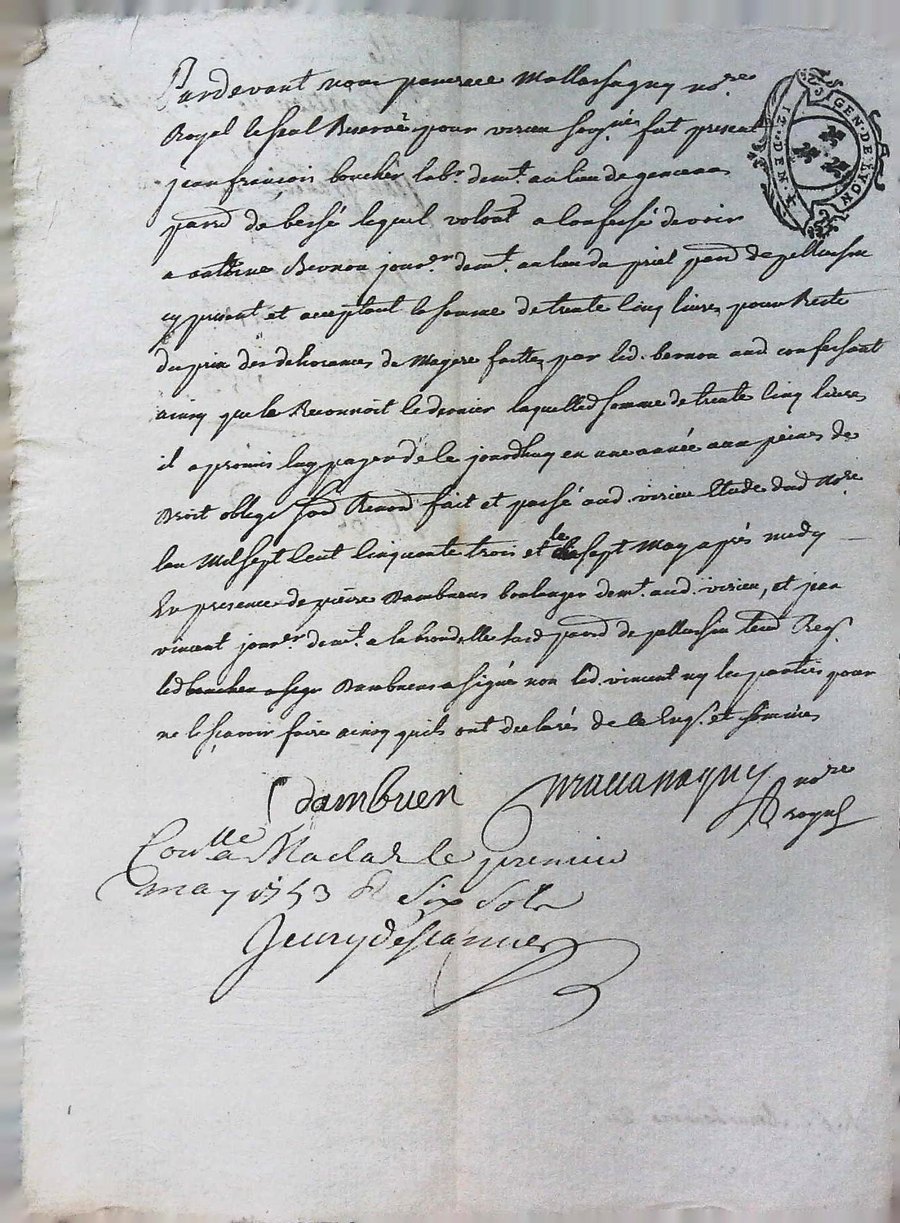 Pardevant nous pancrace Mallassagny no.re
Royal le seal Reservé pour virieu sougné fut present
jean françois boucher labr. demt. au lieu de
paroi de bessé lequel volont a confessé devoir
a anttoine Bernou jourer. demt. au lieu du priel paroi de pellussin
cy present et acceptant la somme de trente cinq livres pour Reste
du prix des de faittes par led. bernou aud. confessant
ainsy que le Reconnoit le dernier laquelled somme de trente cinq livres
il a promis luy payer de le jourdhuy en une année aux peines de
Droit oblige soud Renond fait et passé aud virieu Etude dud No.re
lan Mil sept Cent Cinquante trois et le sept May après midy
En presence de pierre Dambuens boulanger demt. aud. virieu, et jean
vincent jourer. demt. a la paroi de pellussin
led Dambuens a signé non led. vincent ny les parties pour
ne le sçavoir faire ainsy quils ont declarés de ce Enqs. et sommés
dambuen no.re
royal
Conlle a Maclas le premier
may 1753 R six sols